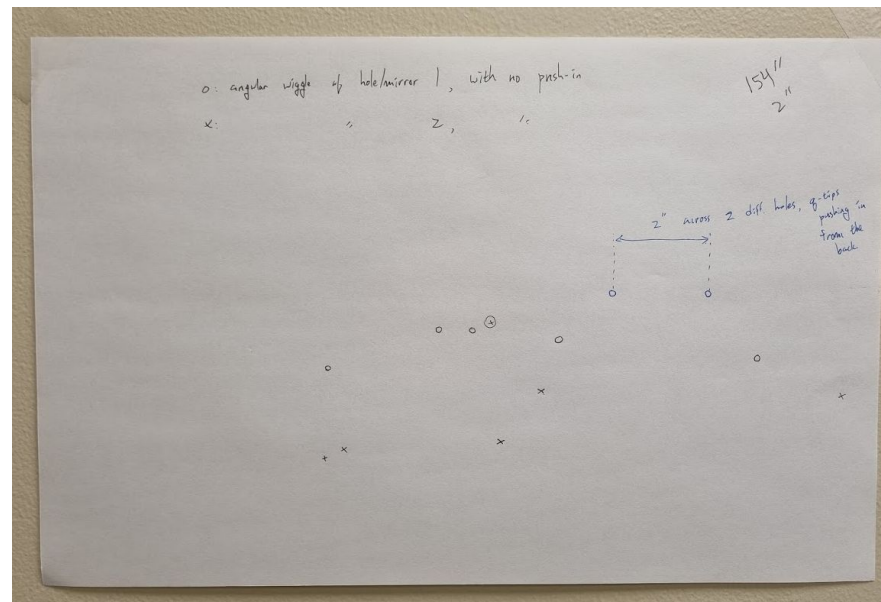 o: angular wiggle of hole/mirror 1, with no push-in
x: " 2, "
154"
2"
2" across 2 diff holes, q-tips
pushing in
from the
back